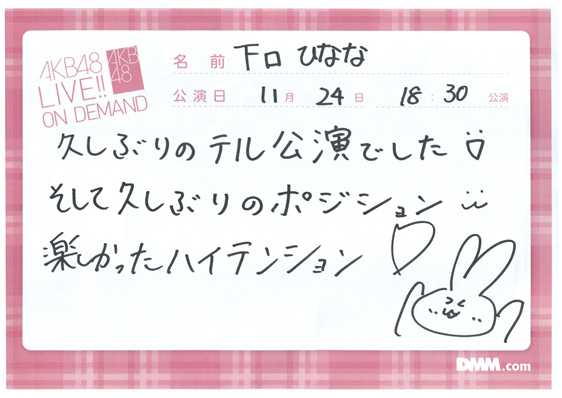 AKB48
LIVE!!
ON DEMAND
AKB
48
名 前 下口 ひなな
公演日 11月 24日 18:30 公演
久しぶりのテル公演でした
そして久しぶりのポジション
楽しかったハイテンション
DMM.com